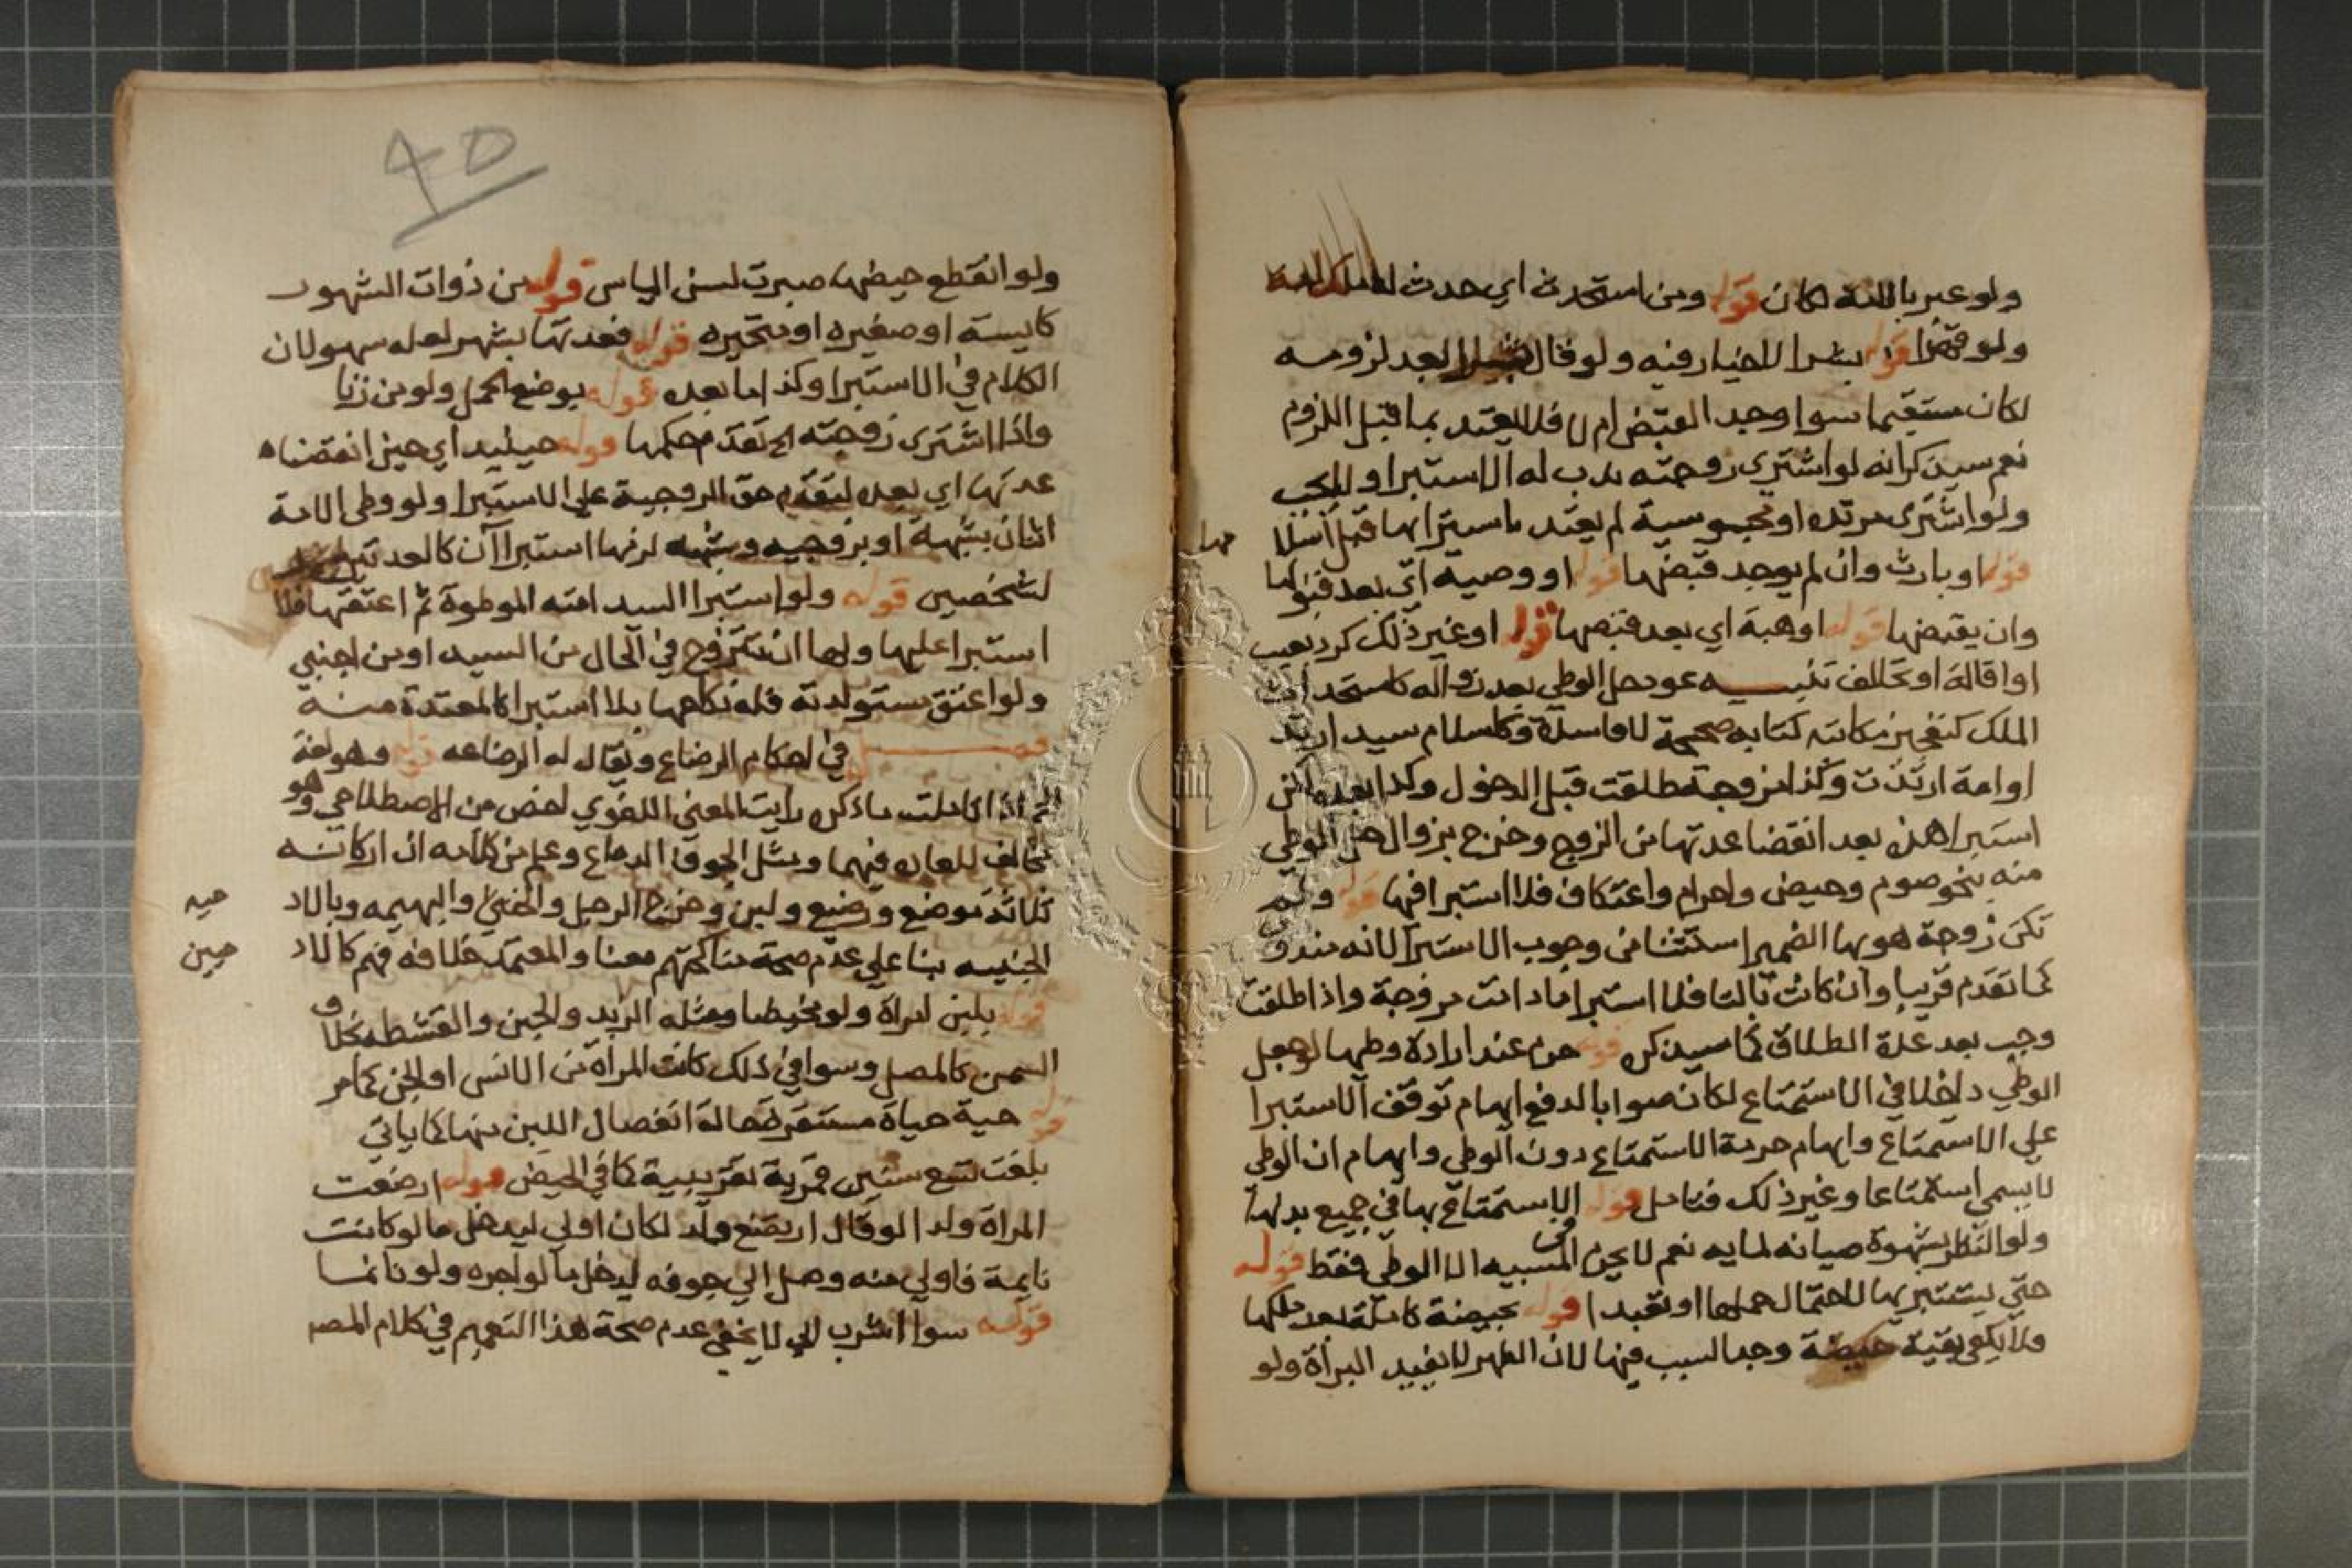 ولو عبر بالامة لكان قوله ومن استحدث اي حدث له ملك امة
ولو قهرا قوله بشرا لا خيار فيه ولو قال بشرا بعد لزومه
لكان مستقيما سوا وجد القبض ام لا فلا يعتد بما قبل اللزوم
نعم سيذكر انه لو اشترى زوجته ندب له الاستبرا ولا يجب
ولو اشترى مرتدة او مجوسية لم يعتد باستبرايها قبل اسلا
مها
قوله او بارث وان لم يوجد قبضها قوله او وصية اي بعد قبولها
وان يقبضها قوله او هبة اي بعد قبضها قوله او غير ذلك كرد بعيب
او اقالة او تحالف تنبيه عود حل الوطي بعد زواله كاستحداث
الملك كتعجيز مكاتبه كتابه صحيحة لا فاسدة وكاسلام سيد ارتد
او امة ارتدت وكذا مزوجة طلقت قبل الدخول وكذا بعده لكن
استبرا هذه بعد انقضا عدتها من الزوج وخرج بزوال حل الوطي
منه بنحو صوم وحيض واحرام واعتكاف فلا استبرا فيها قوله ولم
تكن زوجة هو بها الضمير استثنا من وجوب الاستبرا لانه مندوب
كما تقدم قريبا وان كانت فلا استبرا مادامت مزوجة واذا طلقت
وجب بعد عدة الطلاق كما سيذكره قوله حرم عند ارادة وطيها لو جعل
الوطي داخلا في الاستمتاع لكان صوابا لدفع ايهام توقف الاستبرا
على الاستمتاع وايهام حرمة الاستمتاع دون الوطي وايهام ان الوطي
لا يسمى استمتاعا وغير ذلك فتامل قوله الاستمتاع بها في جميع بدنها
ولو النظر بشهوة صيانة لمايه نعم لا يحرم من المسبيه الا الوطي فقط قوله
حتى يستبريها لاحتمال حملها او تعبدا قوله بحيضة كاملة بعد ملكها
ولا يكفي بقية حيضة وجد السبب فيها لان الطهر لا يفيد البراة ولو
٤٥
ولو انقطع حيضها صبرت لسن الياس قوله من ذوات الشهور
كايسة او صغيره او متحيره قوله فعدتها بشهر لعله سهو لان
الكلام في الاستبرا وكذا ما بعده قوله بوضع الحمل ولو من زنا
واذا اشترى زوجته الخ تقدم حكمها قوله حينيد اي حين انقضاء
عدتها اي بعده لتقدم حق الزوجية على الاستبرا ولو وطى الامة
اثنان بشبهة او بزوجيه وشبهه لزمها استبراآن كالعدتين
لشخصين قوله ولو استبرا السيد امته الموطوة ثم اعتقها فلا
استبرا عليها ولها ان تتزوج في الحال من السيد او من اجنبي
ولو اعتق مستولدته فله نكاحها بلا استبرا كالمعتدة منه
فصل في احكام الرضاع ويقال له الرضاعه قوله وهو لغة
الخ اذا تاملت ما ذكره رايت المعنى اللغوي اخص من الاصطلاحي وهو
مخالف للعاده فيهما ومثل الجوف الدماغ وعلم من كلامه ان اركانه
ثلاثة مرضع ورضيع ولبن وخرج الرجل والخنثى والبهيمه وبالاد
ميه
الجنيه بنا على عدم صحة مناكحتهم معنا والمعتمد خلافه فهم كالاد
ميين
قوله بلبن امراة ولو مخيضا ومثله الزبد والجبن والقشطه بخلاف
السمن كالمصل وسوا في ذلك كانت المراة من الانس او الجن كما مر
قوله حية حياة مستقرة حالة انفصال اللبن منها كما ياتي
بلغت تسع سنين قمرية تقريبية كما في الحيض قوله ارضعت
المراة ولدا لو قال ارتضع ولد لكان اولى ليدخل ما لو كانت
نايمة فاولى منه وصل الى جوفه ليدخل ما لو اجره ولو نايما
قوله سوا اشرب الخ لا يخفى عدم صحة هذا التعميم في كلام المصـ